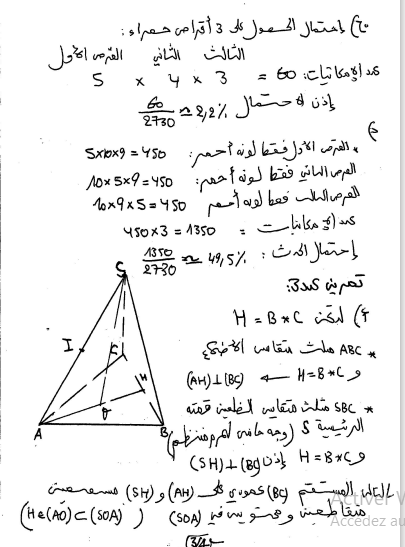 ج) إحتمال الحصول على 3 أقراص حمراء:
القرص الأول الثاني الثالث
عدد الإمكانيات: 60 = 5 × 4 × 3
إذن الاحتمال 60/2730 ≈ 2,2%
د)
* القرص الأول فقط لونه أحمر: 5×10×9 = 450
القرص الثاني فقط لونه أحمر: 10×5×9 = 450
القرص الثالث فقط لونه أحمر 10×9×5 = 450
عدد الإمكانيات = 450×3 = 1350
إحتمال الحدث: 1350/2730 ≈ 49,5%
تمرين عدد3:
لتكن H = B*C
* ABC مثلث متقايس الأضلاع
و H = B*C ← (AH)⊥(BC)
* SBC مثلث متقايس الضلعين قمته
الرئيسية S (وجه جانبي لهرم منتظم)
و H = B*C إذن (SH)⊥(BC)
بالتالي المستقيم (BC) عمودي على (AH) و (SH) مستقيمين
متقاطعين ومحتويين في (SOA) (H∈(AO)⊂(SOA))
S
I
H
O
A
B
Activer W
Accédez au